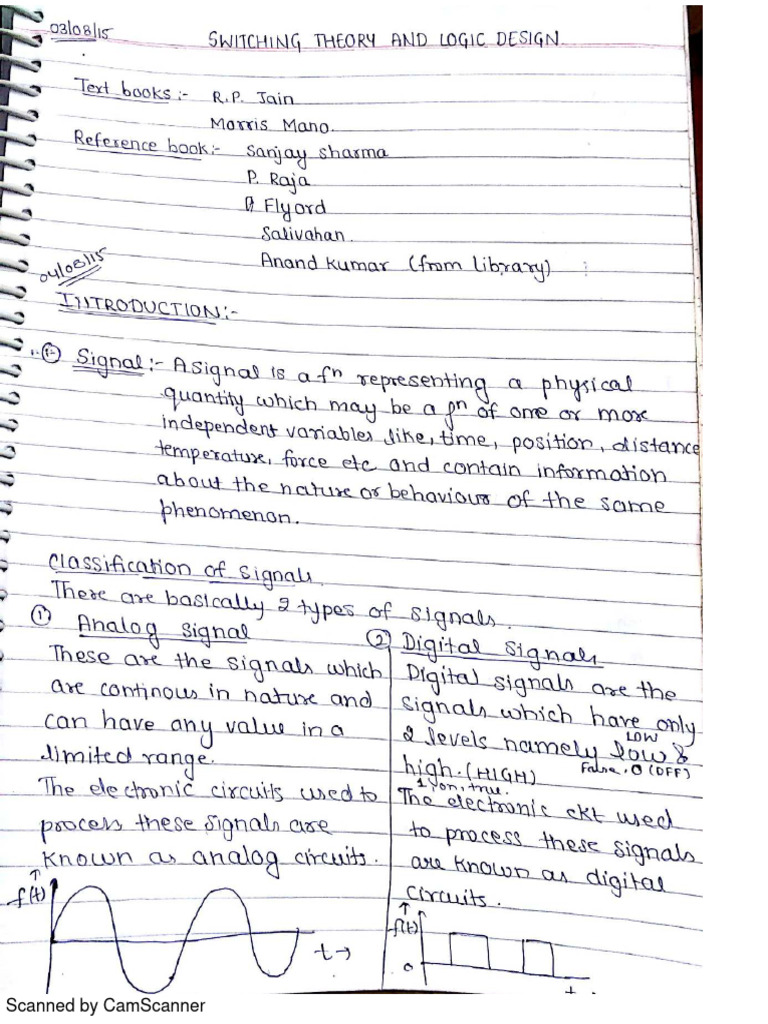 03/08/15
SWITCHING THEORY AND LOGIC DESIGN
Text books:- R.P. Jain
Morris Mano.
Reference book:- Sanjay Sharma
P. Raja
Flyord
Salivahan.
Anand Kumar (from library)
04/08/15
INTRODUCTION:-
① Signal:- A signal is a fn representing a physical
quantity which may be a fn of one or more
independent variables like, time, position, distance
temperature, force etc and contain information
about the nature or behaviour of the same
phenomenon.
Classification of signals.
There are basically 2 types of signals.
① Analog signal
These are the signals which
are continous in nature and
can have any value in a
limited range.
The electronic circuits used to
process these signals are
known as analog circuits.
f(t)
t→
② Digital signals
Digital signals are the
signals which have only
2 levels namely low &
LOW
False, 0 (OFF)
high. (HIGH)
1, on, true.
The electronic ckt used
to process these signals
are known as digital
circuits.
f(t)
0
t
Scanned by CamScanner